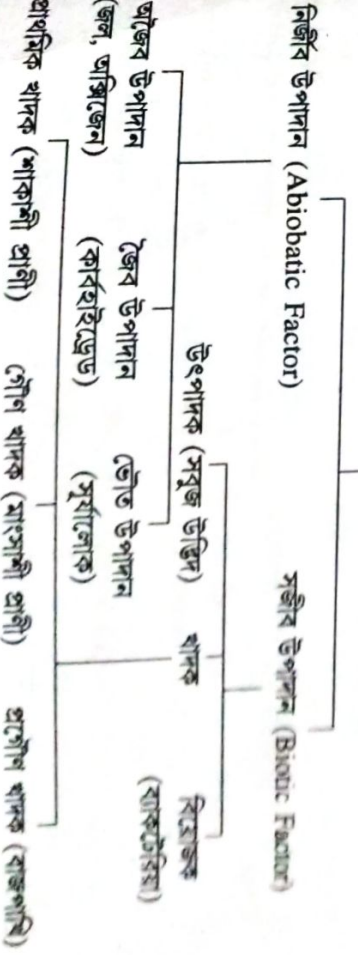 নির্জীব উপাদান (Abiobatic Factor) সজীব উপাদান (Biotic Factor)
অজৈব উপাদান জৈব উপাদান ভৌত উপাদান
(জল, অক্সিজেন) (কার্বহাইড্রেড) (সূর্যালোক)
উৎপাদক (সবুজ উদ্ভিদ) খাদক বিয়োজক
(ব্যাকটেরিয়া)
খাদক (শাকাশী প্রাণী) গৌণ খাদক (মাংসাশী প্রাণী) প্রগৌণ খাদক (বাজপাখি)